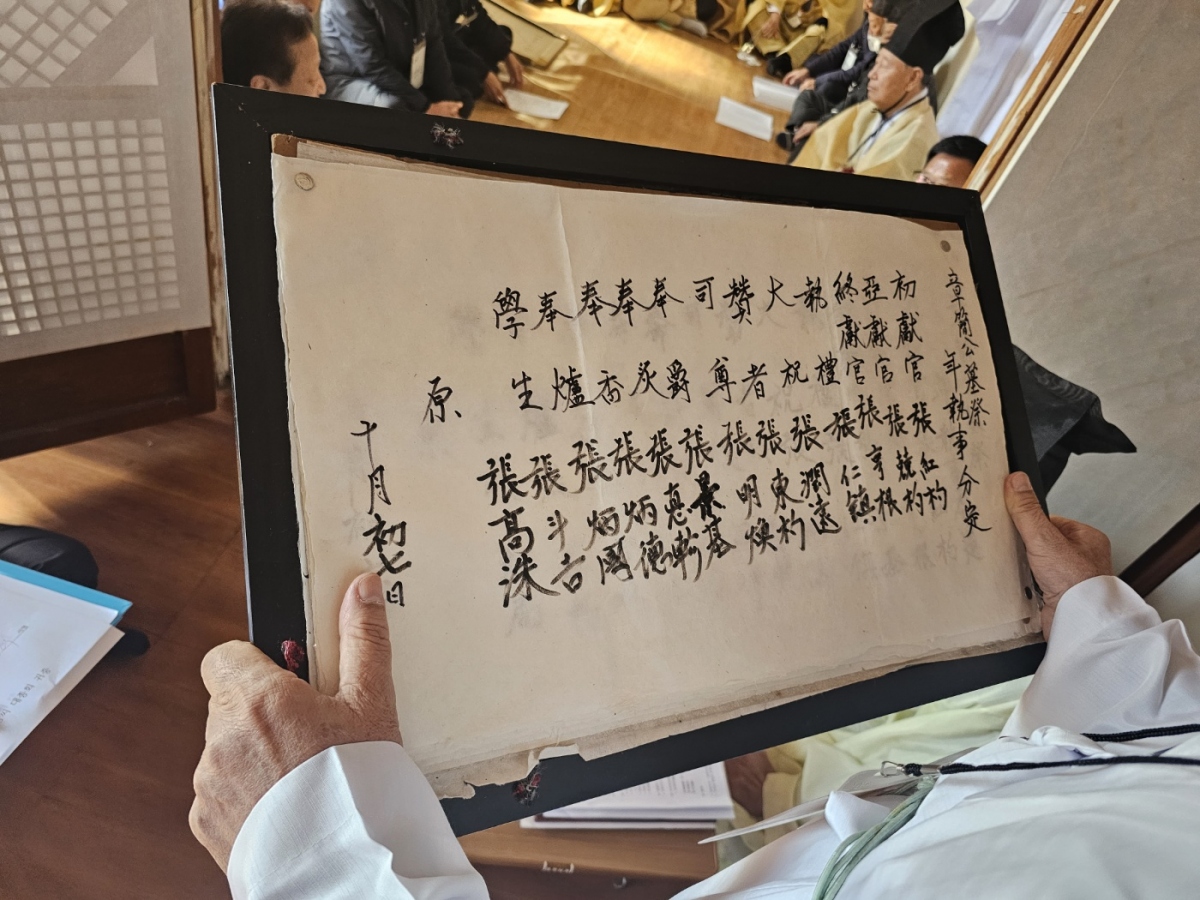 章簡公墓祭
年執事分定
初獻官 張紅杓
亞獻官 張兢杓
終獻官 張亨根
執禮 張仁鎮
大祝 張潤遠
贊者 張東杓
司尊 張明煥
奉爵 張景基
奉炙 張悳翰
奉香 張炳德
奉爐 張炳國
學生 張斗吉
張高洙
原
十月初七日